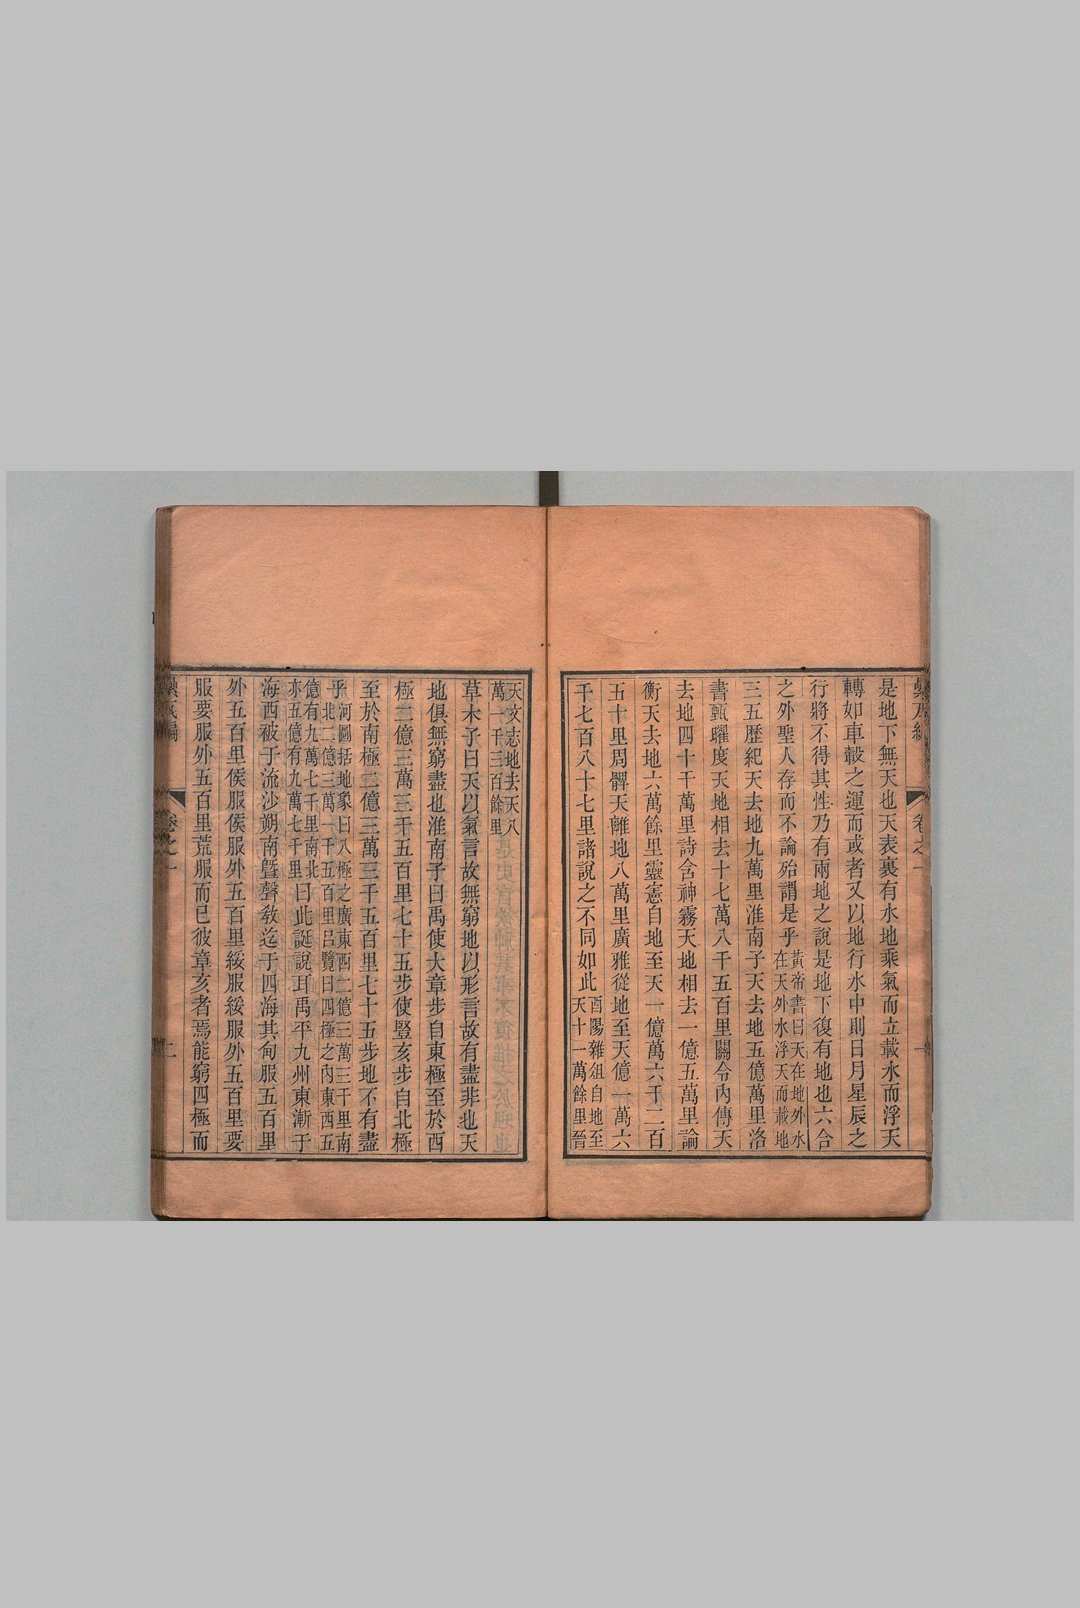 是地下無天也天表裏有水地乘氣而立載水而浮天
轉如車轂之運而或者又以地行水中則日月星辰之
行將不得其性乃有兩地之說是地下復有地也六合
之外聖人存而不論殆謂是乎黃帝書曰天在地外水
在天外水浮天而載地
三五歷紀天去地九萬里淮南子天去地五億萬里洛
書甄曜度天地相去十七萬八千五百里關令內傳天
去地四十千萬里詩含神霧天地相去一億五萬里論
衡天去地六萬餘里靈憲自地至天一億萬六千二百
五十里周髀天離地八萬里廣雅從地至天億一萬六
千七百八十七里諸說之不同如此酉陽雜俎自地至
天十一萬餘里晉
天文志地去天八
萬一千三百餘里
草木子曰天以氣言故無窮地以形言故有盡非也天
地俱無窮盡也淮南子曰禹使大章步自東極至於西
極二億三萬三千五百里七十五步使豎亥步自北極
至於南極二億三萬三千五百里七十五步地不有盡
乎河圖括地象曰八極之廣東西二億三萬三千里南
北二億三萬一千五百里呂覽曰四極之內東西五
億有九萬七千里南北
亦五億有九萬七千里曰此誕說耳禹平九州東漸于
海西被于流沙朔南曁聲敎迄于四海其甸服五百里
外五百里侯服侯服外五百里綏服綏服外五百里要
服要服外五百里荒服而已彼章亥者焉能窮四極而
卷之一
二